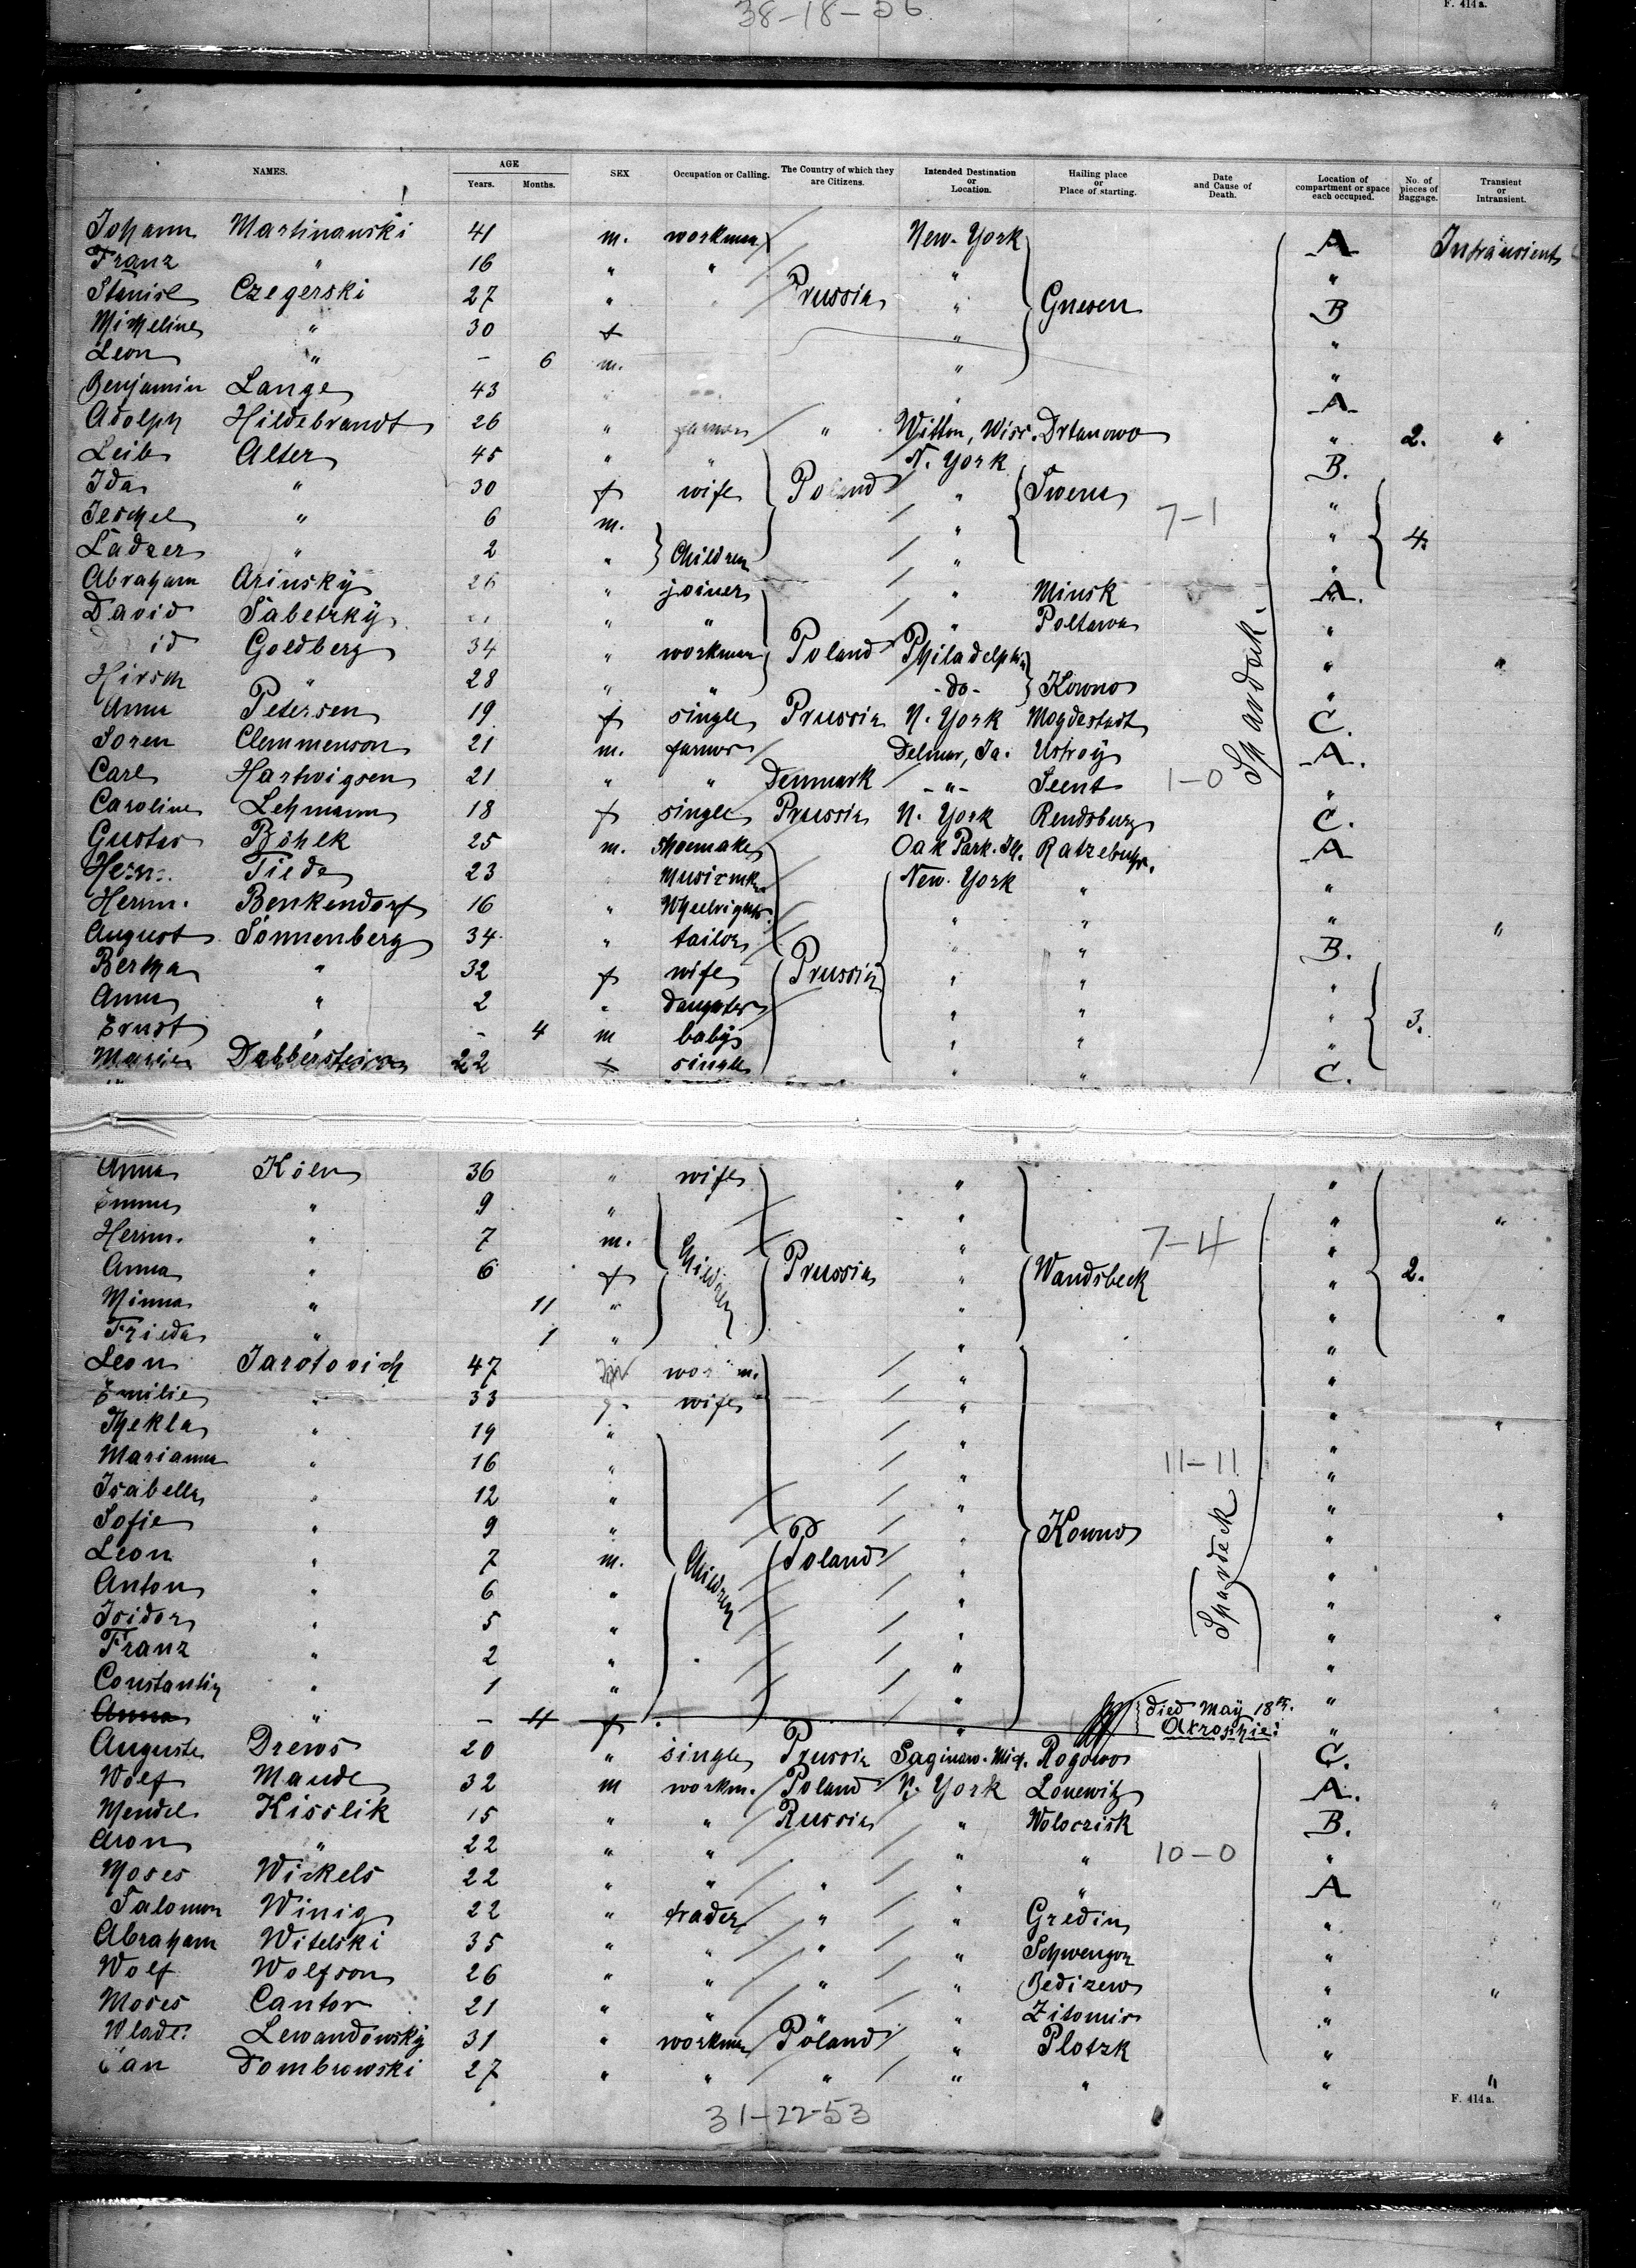 38-18-56
F. 414a.
NAMES. AGE Years. Months. SEX Occupation or Calling. The Country of which they are Citizens. Intended Destination or Location. Hailing place or Place of starting. Date and Cause of Death. Location of compartment or space each occupied. No. of pieces of Baggage. Transient or Intransient.
Johann Martinanski 41 m. workman New-York A Intransient
Franz " 16 " " " "
Stanisl Czegerski 27 " " Prussia " Gnesen B
Micheline " 30 f " "
Leon " - 6 m. " "
Benjamin Lange 43 " A
Adolph Hildebrandt 26 " farmer " Witton, Wisc. Drtanowo " 2. "
Leib Alter 45 " " N. York B.
Ida " 30 f wife Poland " Swens "
Jeschel " 6 m. " 7-1 " 4.
Ladzer " 2 " Children " "
Abraham Arinsky 26 " joiner " Minsk A.
David Sabetzky " " " Poltawa "
id Goldberg 34 " workman Poland Philadelphia " "
Hirsch " 28 " " -do- Kowno "
Anna Petersen 19 f single Prussia N. York Mogdestadt C.
Soren Clemmenson 21 m. farmer Delmar, Ia. Ustroy A.
Carl Hartwigsen 21 " " Denmark -"- Seent 1-0 "
Caroline Lehmann 18 f single Prussia N. York Rendsburg C.
Gustav Böhlk 25 m. shoemaker Oak Park. Ill. Ratzebuhr. A
Herm. Tiede 23 New-York " "
Herm. Benkendorf 16 " Wheelright " " "
August Sonnenberg 34 " tailor " " B. "
Bertha " 32 f wife Prussia " " "
Anna " 2 " daughter " " " 3.
Ernst " - 4 m baby " " "
Marie Dabberstein 22 f single " " C.
Spardeck.
Anna Köln 36 " wife " "
Emma " 9 " " " "
Herm. " 7 m. " 7-4 "
Anna " 6 f Children Prussia " Wandsbeck " 2.
Minna " 11 " " " "
Frieda " 1 " " "
Leon Jarotovich 47 m " "
Emilie " 33 f wife " " "
Thekla " 19 " " "
Marianna " 16 " " 11-11 "
Isabella " 12 " " " "
Sofie " 9 " " Kowno "
Leon " 7 m. Children Poland " "
Anton " 6 " " "
Isidor " 5 " " " "
Franz " 2 " " "
Constantin " 1 " " " "
Anna " - 11 f " died May 18th. Atrophie. "
Spardeck
Auguste Drews 20 " single Prussia Saginaw. Mich. Rogowo C.
Wolf Maude 32 m workm. Poland N. York Lonewitz A. "
Mendel Kisslik 15 " " Russia " Woloczisk B.
Aron " 22 " " " " 10-0 "
Moses Wickels 22 " " " " " A
Salomon Winig 22 " trader " " Gredin " "
Abraham Witelski 35 " " " " Schwengon "
Wolf Wolfson 26 " " " " Bedizew " "
Moses Cantor 21 " " " Zitomir "
Wlad. Lewandowsky 31 " workman Poland " Plotzk "
Jan Dombrowski 27 " " " " " " "
F. 414a.
31-22-53